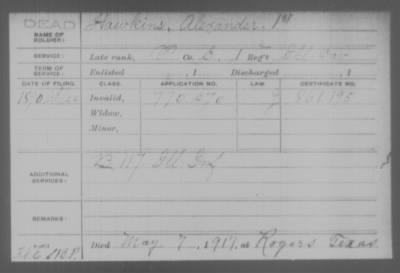 DEAD
NAME OF SOLDIER: Hawkins, Alexander, 1st
SERVICE: Late rank, Co. E, 1 Reg't Ill Cav
TERM OF SERVICE: Enlisted , 1 Discharged , 1
DATE OF FILING. CLASS. APPLICATION NO. LAW. CERTIFICATE NO.
Invalid, 770.270 861.195
Widow,
Minor,
ADDITIONAL SERVICES: 117 Ill Inf
REMARKS:
Died May 7, 1917, at Rogers Texas